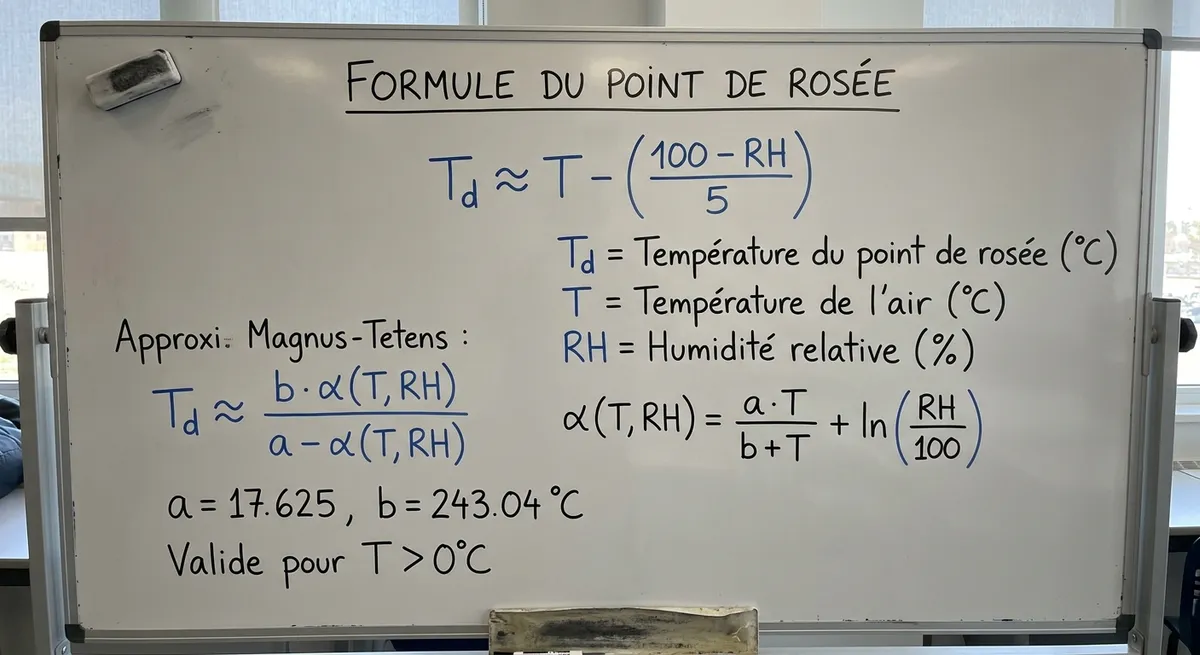 FORMULE DU POINT DE ROSÉE
T_d ≈ T − ( (100 − RH) / 5 )
T_d = Température du point de rosée (°C)
T = Température de l'air (°C)
RH = Humidité relative (%)
Approxi. Magnus-Tetens :
T_d ≈ b·α(T, RH) / a − α(T, RH)
α(T, RH) = a·T / b+T + ln(RH / 100)
a = 17.625, b = 243.04 °C
Valide pour T > 0°C